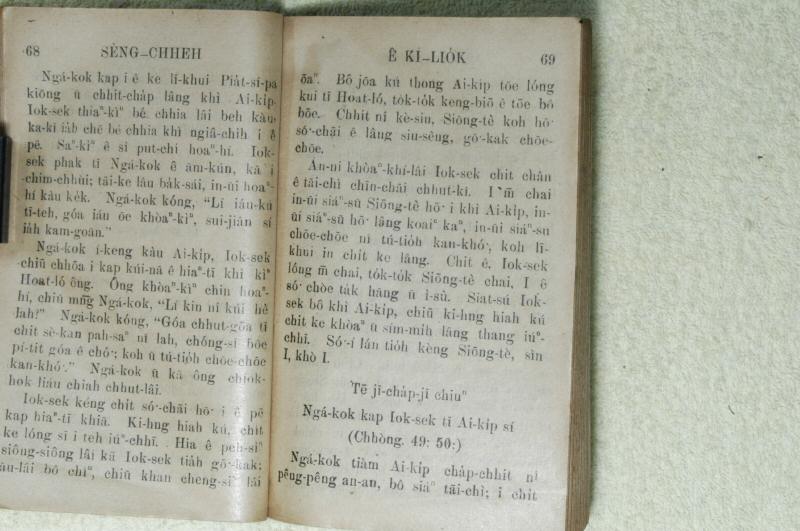 68 SÈNG-CHHEH
Ngá-kok kap i ê ke lī-khui Pia̍t-sí-pa
kiōng ū chhit-cha̍p lâng khì Ai-ki̍p.
Iok-sek thiaⁿ-kìⁿ bé chhia lâi beh kàu,
ka-kī ia̍h chē bé chhia khì ngiâ-chih i ê
pē. Saⁿ-kìⁿ ê sî put-chí hoaⁿ-hí. Iok-
sek phak tī Ngá-kok ê ām-kún, kā i
chim-chhùi; tāi-ke lâu ba̍k-sái, in-ūi hoaⁿ-
hí kàu ke̍k. Ngá-kok kóng, "Lí iáu-kú
tī-teh, góa iáu ōe khòaⁿ-kìⁿ, sui-jiân sí
ia̍h kam-goān."
Ngá-kok í-keng kàu Ai-ki̍p, Iok-sek
chiū chhōa i kap kúi-nā ê hiaⁿ-tī khì kìⁿ
Hoat-ló ông. Ông khòaⁿ-kìⁿ chin hoaⁿ-
hí, chiū mn̄g Ngá-kok, "Lí kin nî kúi hè
lah?" Ngá-kok kóng, "Góa chhut-gōa tī
chit sè-kan pah-saⁿ nî lah, chóng-sī bōe
pí-tit góa ê chó͘; koh ū tú-tio̍h chōe-chōe
kan-khó͘." Ngá-kok ū kā ông chiok-
hok liáu chiah chhut-lâi.
Iok-sek kéng chit só͘-chāi hō͘ i ê pē
kap hiaⁿ-tī khiā. Ki-hng hiah kú, chit
ke lóng sī i teh iúⁿ-chhī. Hia ê peh-sìⁿ
siông-siông lâi kā Iok-sek tia̍h gō͘-kak;
āu-lâi bô chîⁿ, chiū khan cheng-siⁿ lâi
Ê KÌ-LIO̍K 69
ōaⁿ. Bô jōa kú thong Ai-ki̍p tōe lóng
kui tī Hoat-ló, to̍k-to̍k keng-biō ê tōe bô
bōe. Chhit nî kè-siu, Siōng-tè koh hō͘
só͘-chāi ê lâng siu-sêng, gō͘-kak chōe-
chōe.
Án-ni khòaⁿ-khí-lâi Iok-sek chit chân
ê tāi-chì chīn-chāi chhut-kî. I m̄ chai
in-ūi siáⁿ-sū Siōng-tè hō͘ i khì Ai-ki̍p, in-
ūi siáⁿ-sū hō͘ lâng koaiⁿ kaⁿ, in-ūi siáⁿ-sū
chōe-chōe nî tú-tio̍h kan-khó͘, koh lī-
khui in chit ke lâng. Chit ê, Iok-sek
lóng m̄ chai, to̍k-to̍k Siōng-tè chai, I ê
só͘ chòe ta̍k hāng ū ì-sù. Siat-sú Iok-
sek bô khì Ai-ki̍p, chiū ki-hng hiah kú
chit ke khòaⁿ ū sím-mi̍h lâng thang iúⁿ-
chhī. Só͘-í lán tio̍h kèng Siōng-tè, sìn
I, khò I.
Tē jī-cha̍p-jī chiuⁿ
Ngá-kok kap Iok-sek tī Ai-ki̍p sí
(Chhòng. 49: 50:)
Ngá-kok tiàm Ai-ki̍p cha̍p-chhit nî
pêng-pêng an-an, bô siáⁿ tāi-chì; i chit